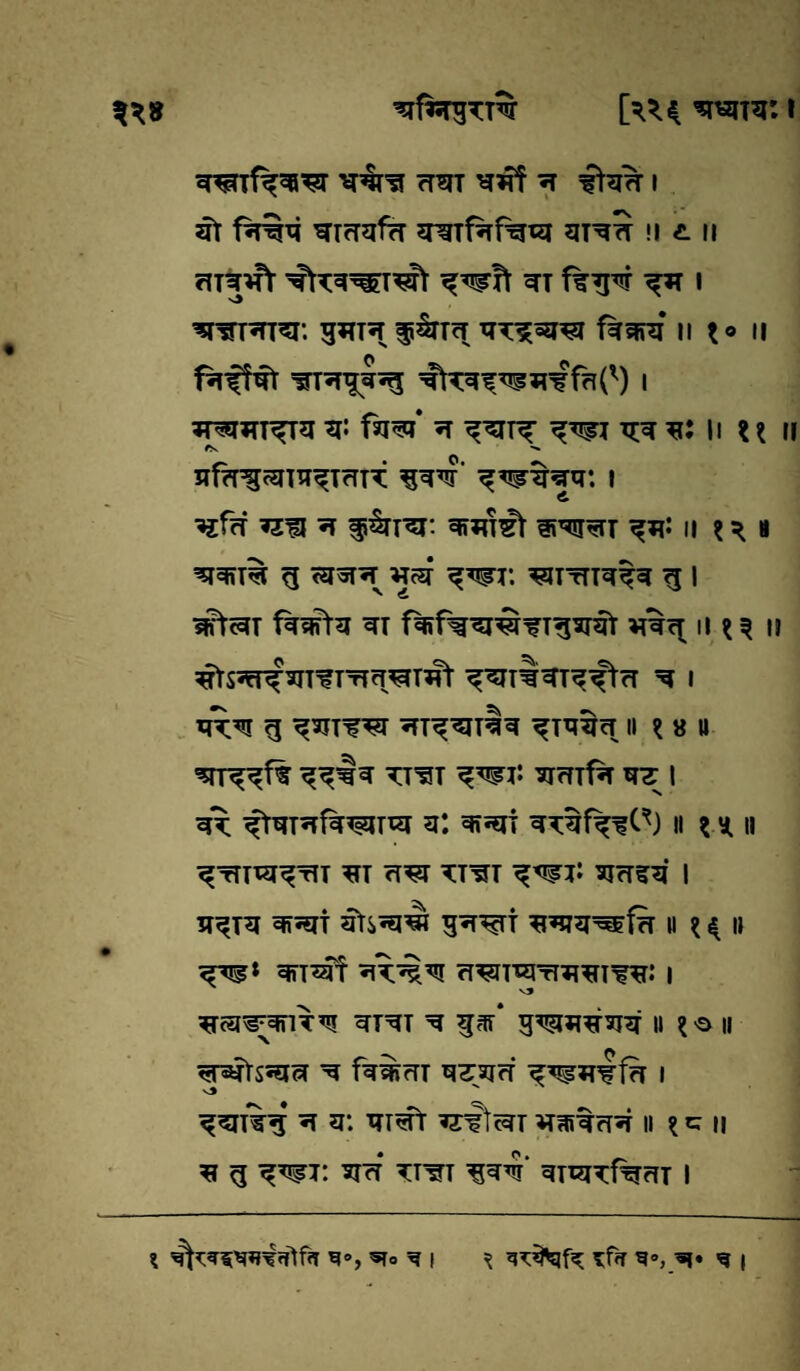 ३२४ अग्निपुराणे [२२६ अध्यायः।
वस्त्रादिकस्य धर्म्मज्ञ तथा धर्म्मो न हीयते ।
यो निक्षेपं घातयति यश्चानिक्षिप्य याचते ॥ ९ ॥
तावुभौ चौरवच्छास्यौ दण्ड्यौ वा द्विगुणं दमं ।
अज्ञानाद्यः पुमान् कुर्य्यात् परद्रव्यस्य विक्रयं ॥ १० ॥
निर्द्दोषो ज्ञानपूर्वन्तु चौरवद्दण्डमर्हति(१) ।
मूल्यमादाय यः शिल्पं न दद्याद्दण्ड्य एव सः ॥ ११ ॥
प्रतिश्रुत्याप्रदातारं सुवर्णं दण्डयेन्नृपः ।
भृतिं गृह्य न कुर्य्याद्यः कर्म्माष्टौ कृष्णला दमः ॥ १२ ॥
अकाले तु त्यजन् भृत्यं दण्ड्यः स्यात्तावदेव तु ।
क्रीत्वा विक्रीय वा किञ्चिद्यस्येहानुशयो भवेत् ॥ १३ ॥
सोऽन्तर्दशाहात्तत्स्वामी दद्याच्चैवाददीत च ।
परेण तु दशाहस्य नादद्यान्नैव दापयेत् ॥ १४ ॥
आददद्धि ददच्चैव राज्ञा दण्ड्यः शतानि षट् ।
वरे दोषानविख्याप्य यः कन्यां वरयेदिह(२) ॥ १५ ॥
दत्ताप्यदत्ता सा तस्य राज्ञा दण्ड्यः शतद्वयं ।
प्रदाय कन्यां योऽन्यस्मै पुनस्तां सम्प्रयच्छति ॥ १६ ॥
दण्डः कार्य्यो नरेन्द्रेण तस्याप्युत्तमसाहसः ।
सत्यङ्कारेण वाचा च युक्तं पुण्यमसंशयं ॥ १७ ॥
लुब्धोऽन्यत्र च विक्रेता षट्शतं दण्डमर्हति ।
दद्याद्धेनुं न यः पालो गृहीत्वा भक्तवेतनं ॥ १८ ॥
स तु दण्ड्यः शतं राज्ञा सुवर्णं वाप्यरक्षिता ।
१ चौरवद्बधमर्हतीति घ॰, ञ॰ च । २ वरयेद्यदि इति घ॰, ञ॰ च ।